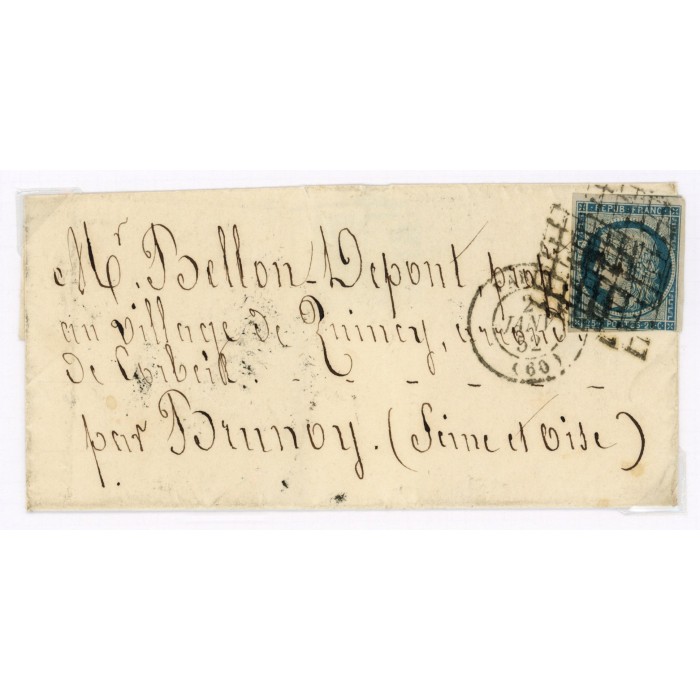 REPUB. FRANC.
Mr. Bellon-Depont prop
PARIS
2
JANV.
52
(60)
au village de Quincy,
de Corbeil. - - - - -
par Brunoy. (Seine et Oise)